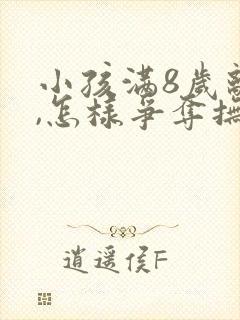 小孩满8岁离
,怎样争夺抚
逍遥侯F